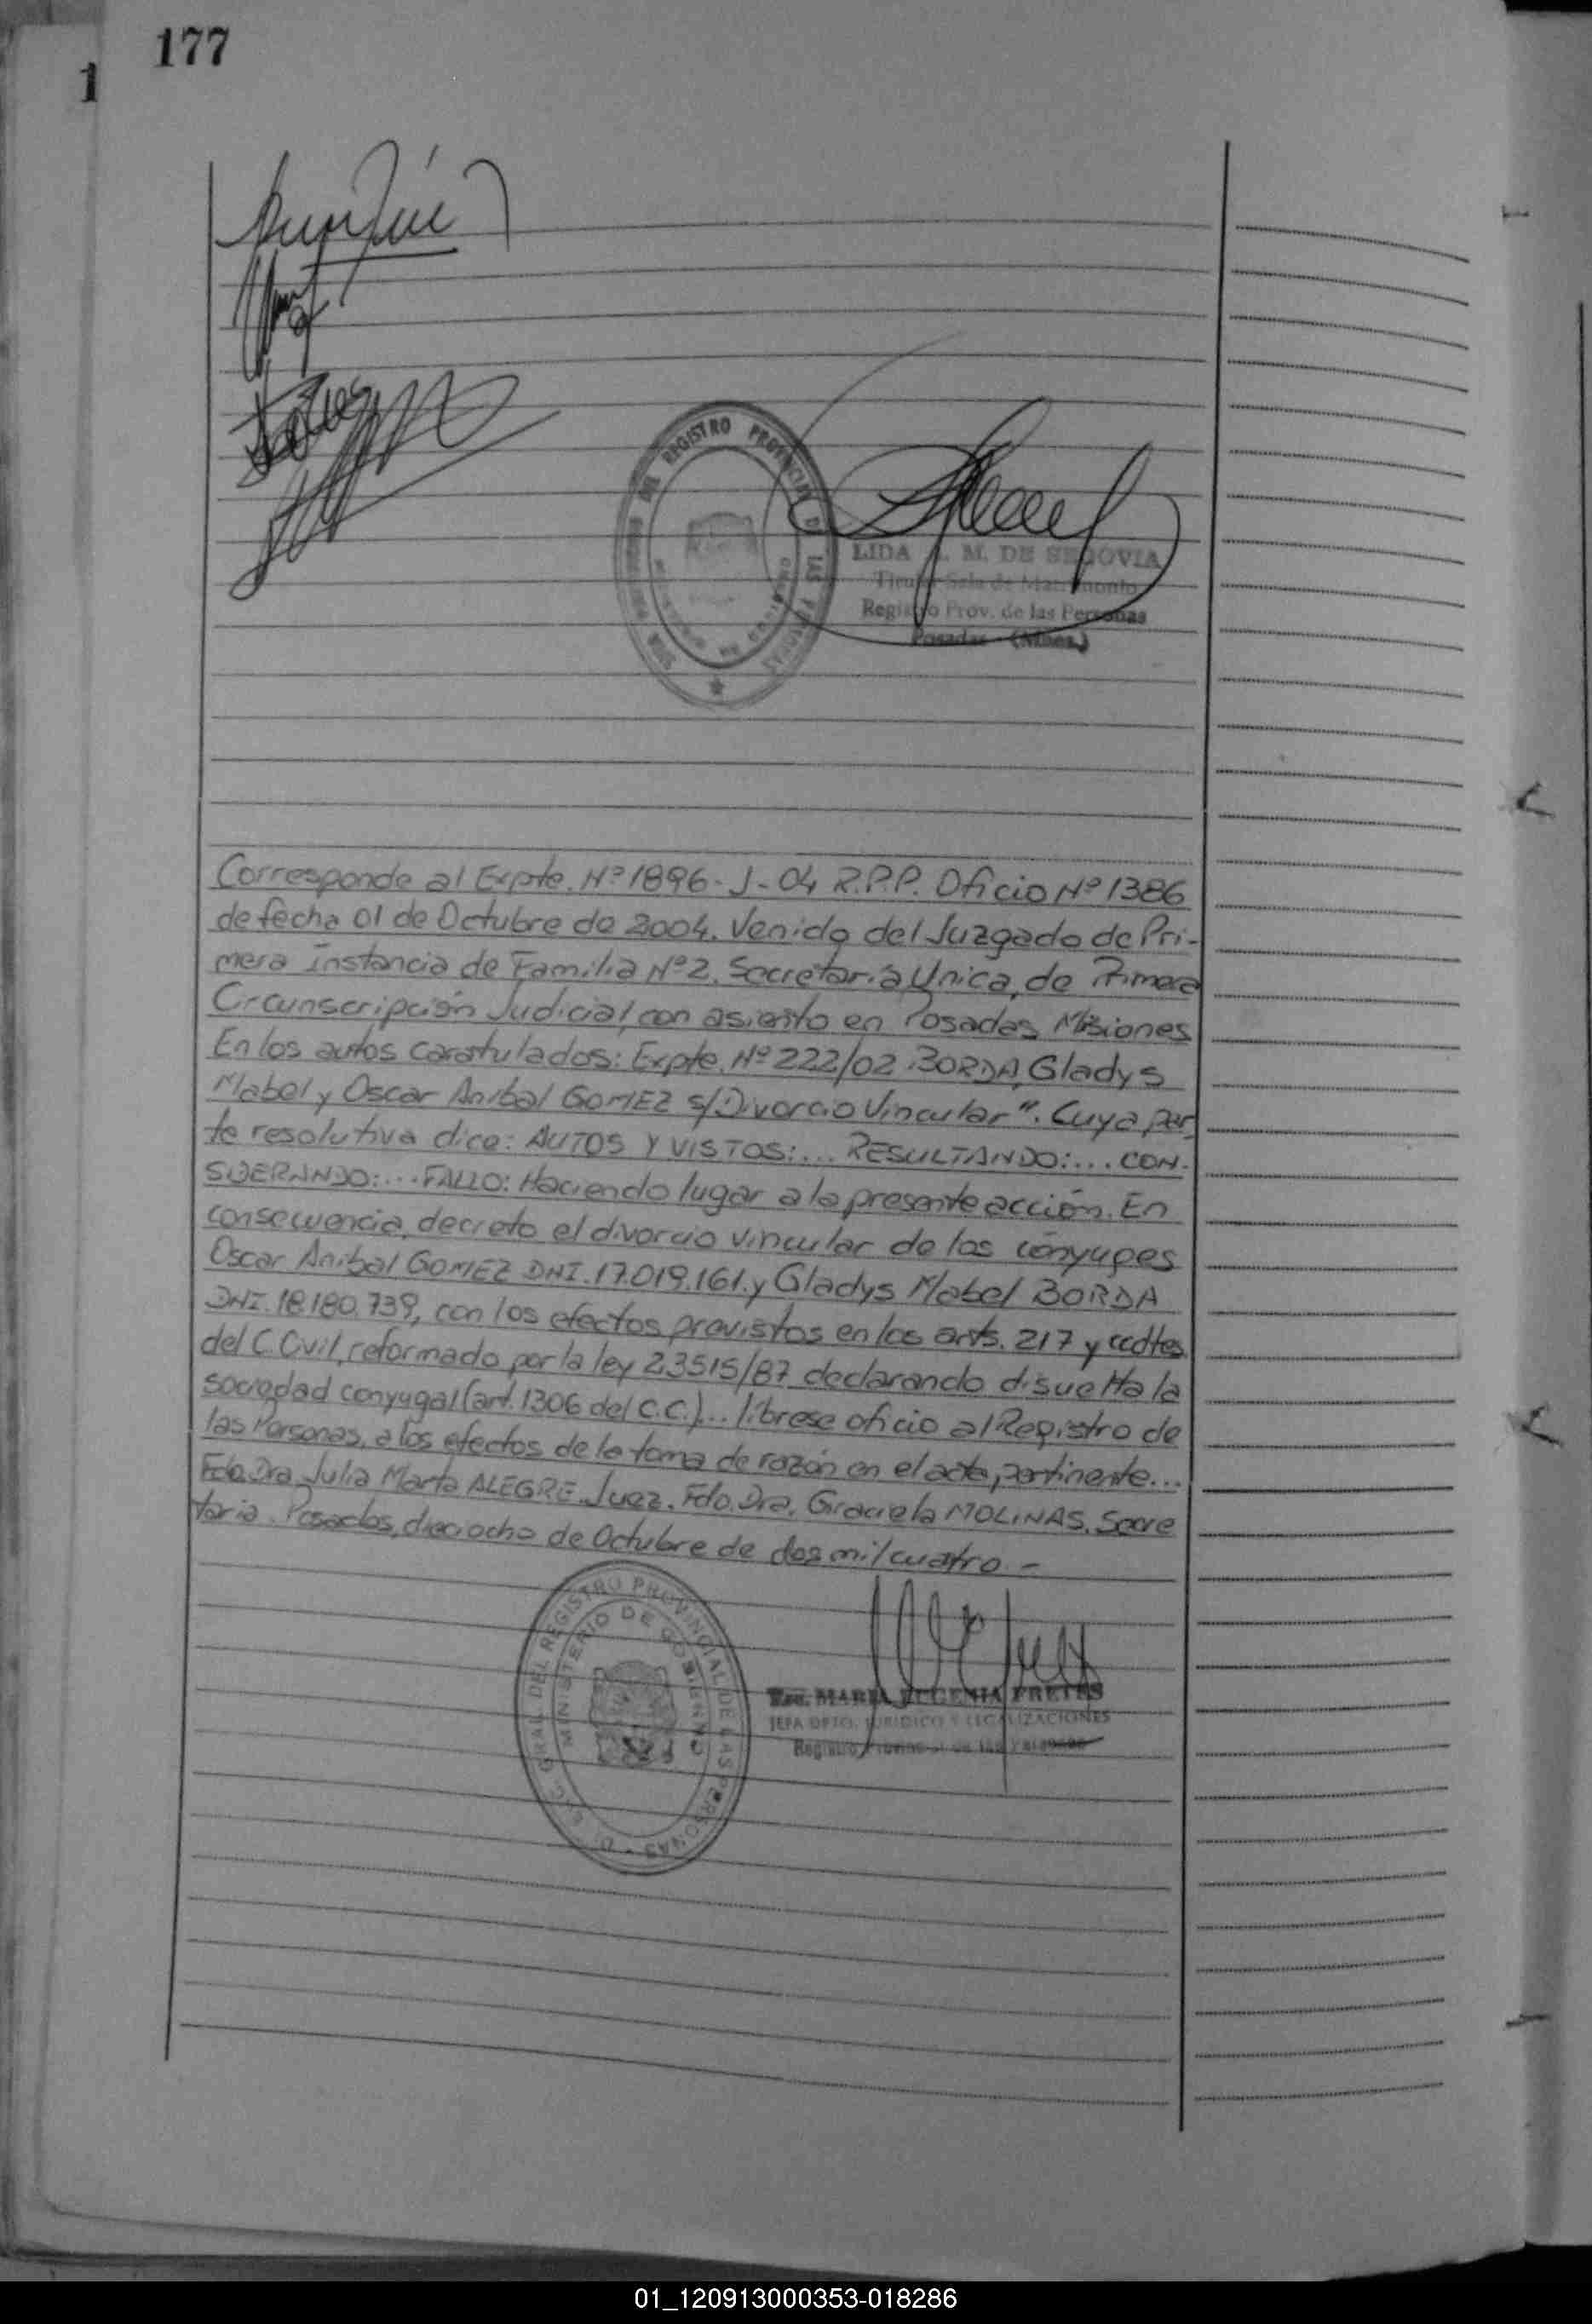 177
1
SUB DEL REGISTRO PROVINCIAL DE LAS PERSONAS
LIDA M. DE SEGOVIA
Titular Sala de Matrimonio
Registro Prov. de las Personas
Posadas - (Mnes.)
Corresponde al Expte. Nº 1896- J- 04 R.P.P. Oficio Nº 1386
de fecha 01 de Octubre de 2004. Venido del Juzgado de Pri-
mera Instancia de Familia Nº 2. Secretaría Unica, de Primera
Circunscripción Judicial, con asiento en Posadas, Misiones
En los autos caratulados: Expte. Nº 222/02 BORDA, Gladys
Mabel y Oscar Anibal GOMEZ s/Divorcio Vincular". Cuya par-
te resolutiva dice: AUTOS Y VISTOS:... RESULTANDO:... CON-
SIDERANDO:... FALLO: Haciendo lugar a la presente acción. En
consecuencia, decreto el divorcio vincular de los cónyuges
Oscar Anibal GOMEZ DNI. 17.019.161. y Gladys Mabel BORDA
DNI. 18.180.739, con los efectos previstos en los arts. 217 y ccdtes
del C. Civil, reformado por la ley 23515/87 declarando disuelta la
sociedad conyugal (art. 1306 del C.C.)... líbrese oficio al Registro de
las Personas, a los efectos de la toma de razón en el acta, pertinente...
Fdo. Dra. Julia Marta ALEGRE. Juez. Fdo. Dra. Graciela MOLINAS. Secre
taria. Posadas, dieciocho de Octubre de dos mil cuatro. -
GRAL DEL REGISTRO PROVINCIAL DE LAS PERSONAS
MINISTERIO DE GOBIERNO
MARIA EUGENIA FRETES
JEFA DPTO. JURIDICO Y LEGALIZACIONES
Registro Provincial de las Personas
01_120913000353-018286